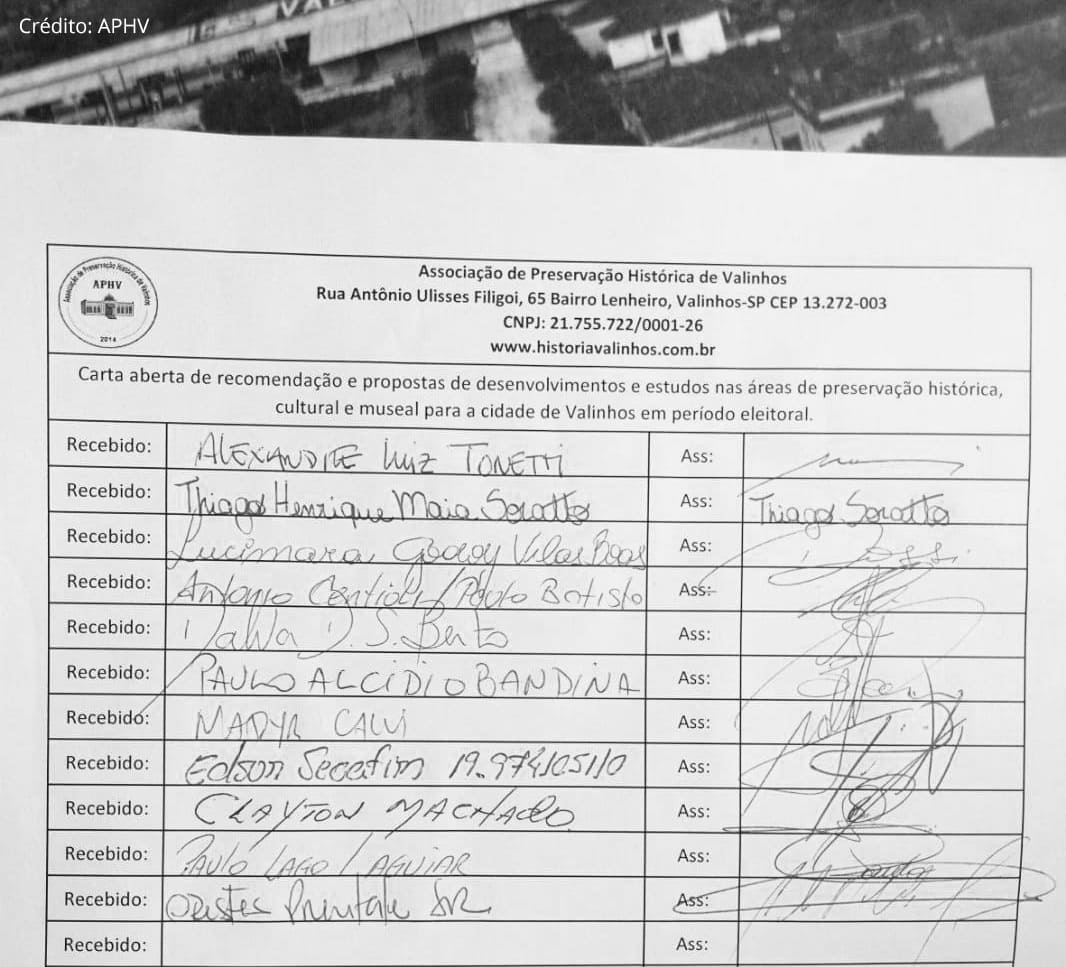 Crédito: APHV
VA
Associação de Preservação Histórica de Valinhos
APHV
2014
Associação de Preservação Histórica de Valinhos
Rua Antônio Ulisses Filigoi, 65 Bairro Lenheiro, Valinhos-SP CEP 13.272-003
CNPJ: 21.755.722/0001-26
www.historiavalinhos.com.br
Carta aberta de recomendação e propostas de desenvolvimentos e estudos nas áreas de preservação histórica,
cultural e museal para a cidade de Valinhos em período eleitoral.
Recebido: ALEXANDRE LUIZ TONETTI Ass:
Recebido: Thiago Henrique Maia Seratto Ass: Thiago Seratto
Recebido: Lucimara Godoy Vilas Boas Ass:
Recebido: Antonio / Paulo Batista Ass:
Recebido: Dalva D. S. Berto Ass:
Recebido: PAULO ALCIDIO BANDINA Ass:
Recebido: MADYR CALVI Ass:
Recebido: Edson Secafim Ass:
Recebido: CLAYTON MACHADO Ass:
Recebido: PAULO LAGO / AGUIAR Ass:
Recebido: JR Ass:
Recebido: Ass: